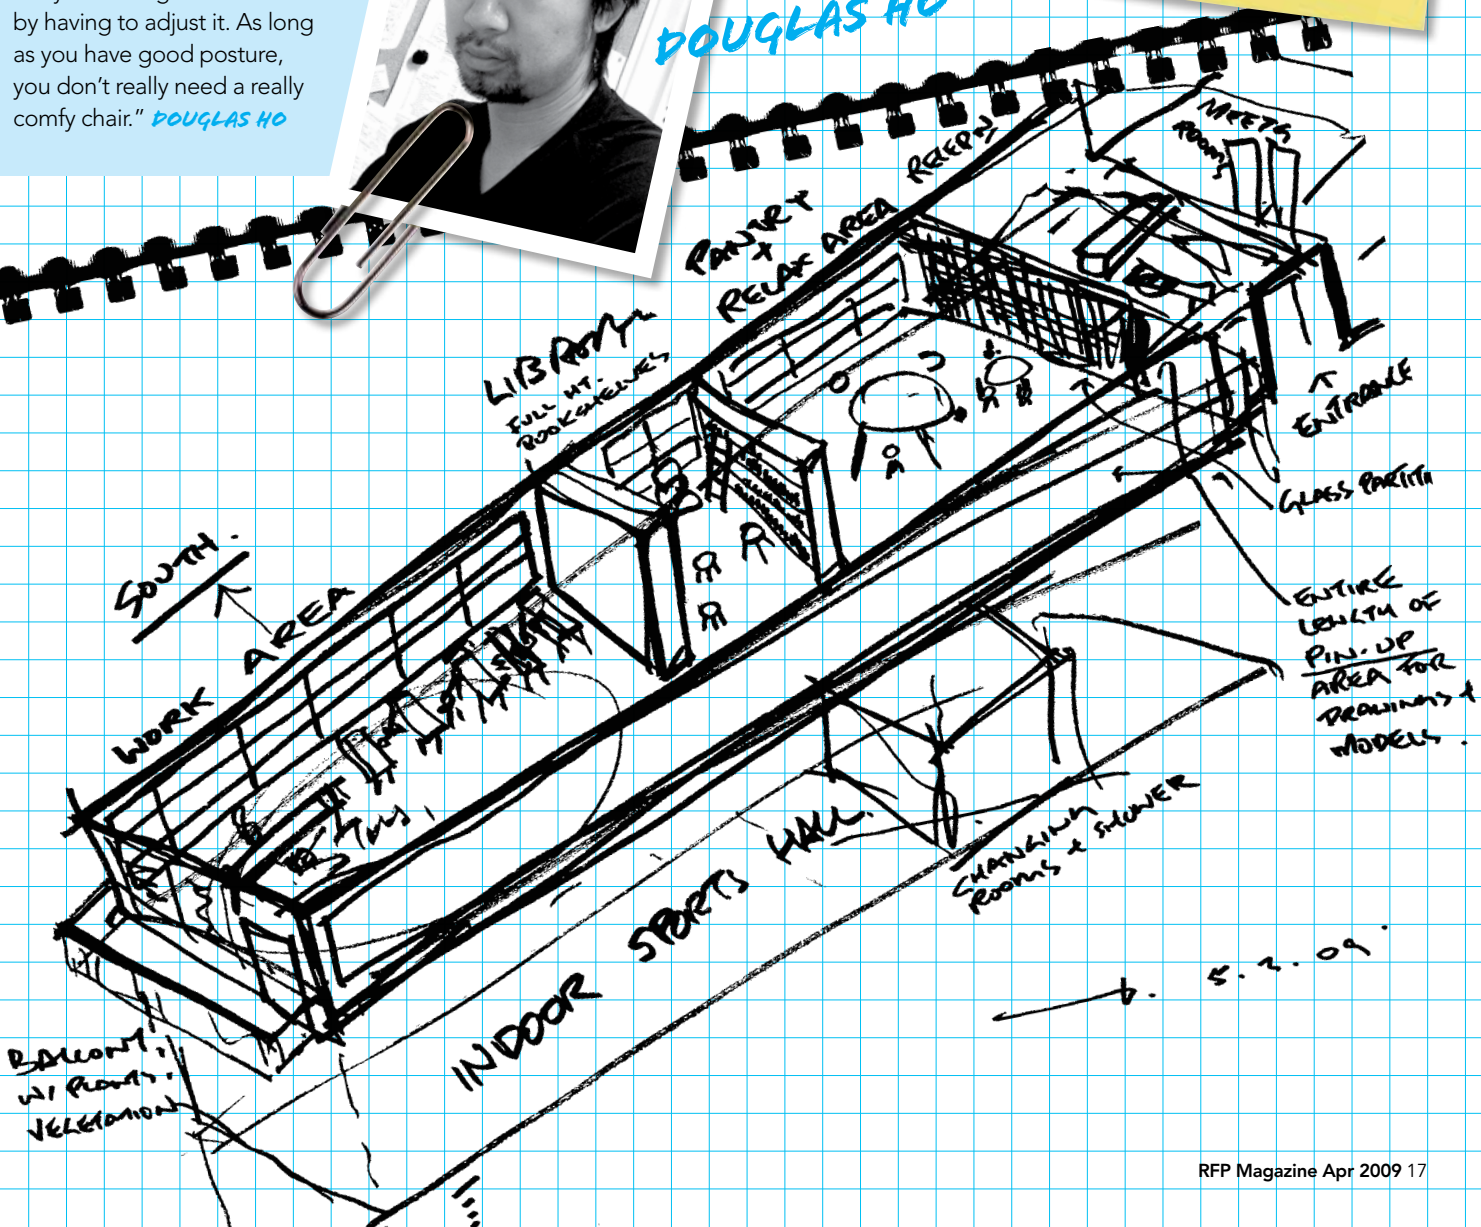 by having to adjust it. As long
as you have good posture,
you don't really need a really
comfy chair." DOUGLAS HO
DOUGLAS HO
MEETG
ROOMS
RECEPN
PANTRY
+
RELAX AREA
LIBRARY
FULL HT.
BOOKSHELVES
ENTRANCE
GLASS PARTITN
SOUTH.
WORK AREA
ENTIRE
LENGTH OF
PIN-UP
AREA FOR
DRAWINGS +
MODELS.
CHANGING
ROOMS + SHOWER
INDOOR SPORTS HALL.
5.2.09
BALCONY
W/ PLANTS.
VEGETATION
RFP Magazine Apr 2009 17